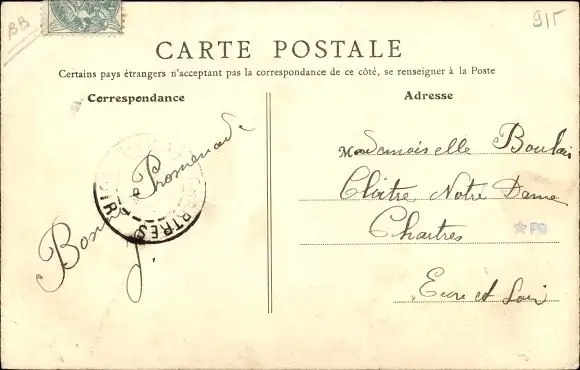 BB
915
CARTE POSTALE
Certains pays étrangers n'acceptant pas la correspondance de ce côté, se renseigner à la Poste
Correspondance
Adresse
Bonne Promenade
J.
CHARTRES
Mademoiselle Boulair
Cloître Notre Dame
Chartres
PB
Eure et Loir